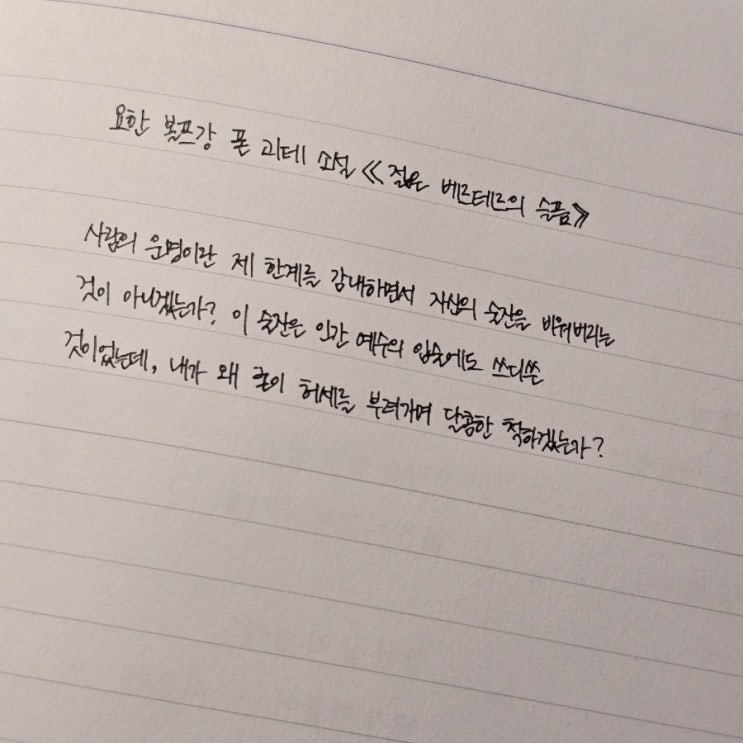 요한 볼프강 폰 괴테 소설 《젊은 베르테르의 슬픔》
사람의 운명이란 제 한계를 감내하면서 자신의 술잔을 비워버리는
것이 아니겠는가? 이 술잔은 인간 예수의 입술에도 쓰디쓴
것이었는데, 내가 왜 굳이 허세를 부려가며 달콤한 척하겠는가?